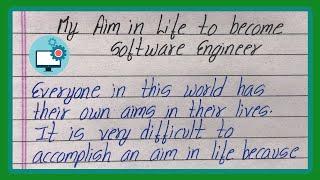 My Aim in Life to become
Software Engineer
Everyone in this world has
their own aims in their lives.
It is very difficult to
accomplish an aim in life because